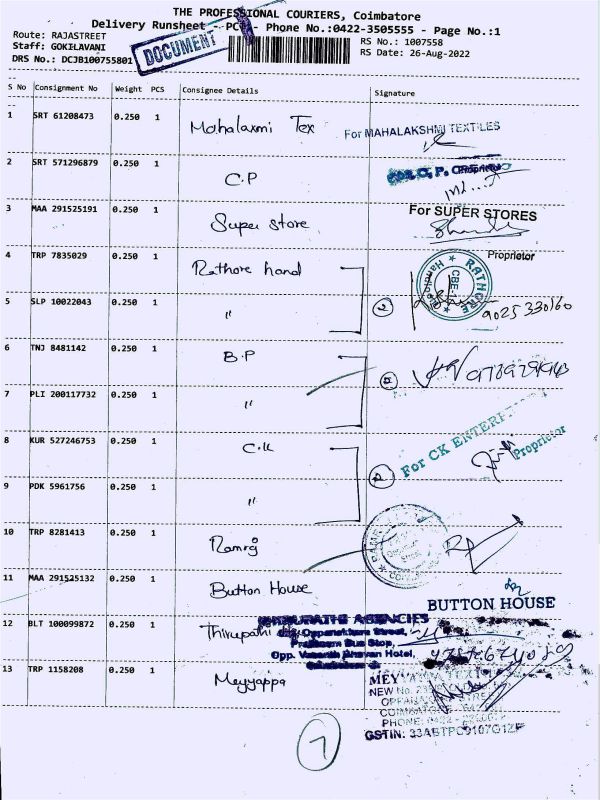 THE PROFESSIONAL COURIERS, Coimbatore
Delivery Runsheet - PC - Phone No.:0422-3505555 - Page No.:1
Route: RAJASTREET
Staff: GOKILAVANI
DRS No.: DCJB100755801
DOCUMENT
RS No.: 1007558
RS Date: 26-Aug-2022
S No Consignment No Weight PCS Consignee Details Signature
1 SRT 61208473 0.250 1 Mahalaxmi Tex For MAHALAKSHMI TEXTILES
2 SRT 571296879 0.250 1 C.P C. P. Proprietor
3 MAA 291525191 0.250 1 Super store For SUPER STORES
Proprietor
4 TRP 7835029 0.250 1 Rathore hand RATHORE CBE-1
5 SLP 10022043 0.250 1 " 2 9025330160
6 TNJ 8481142 0.250 1 B.P
7 PLI 200117732 0.250 1 "
8 KUR 527246753 0.250 1 C.K For CK Proprietor
9 PDK 5961756 0.250 1 " 2
10 TRP 8281413 0.250 1 Ramraj
11 MAA 291525132 0.250 1 Button House
BUTTON HOUSE
12 BLT 100099872 0.250 1 Thirupathi AGENCIES
Oppanakkara Street,
Bus Stop,
Opp. Vasanth Bhavan Hotel,
13 TRP 1158208 0.250 1 Meyyappa
NEW No.
PHONE: 0422
GSTIN:
7